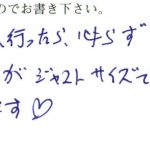 のでお書き下さい。
行ったら、必らず
が ジャストサイズで
す♡